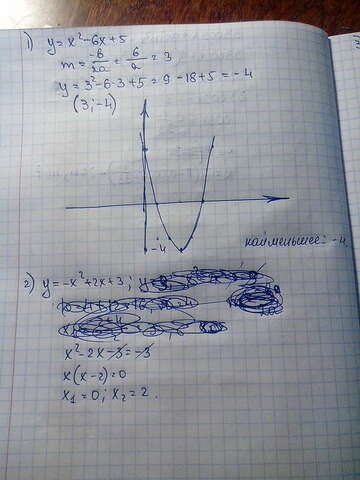 1) y = x² - 6x + 5
m = -b/2a = 6/2 = 3
y = 3² - 6·3 + 5 = 9 - 18 + 5 = -4
(3; -4)
-4
наименьшее: -4
2) y = -x² + 2x + 3;
x² - 2x - 3 = -3
x(x - 2) = 0
x₁ = 0; x₂ = 2.